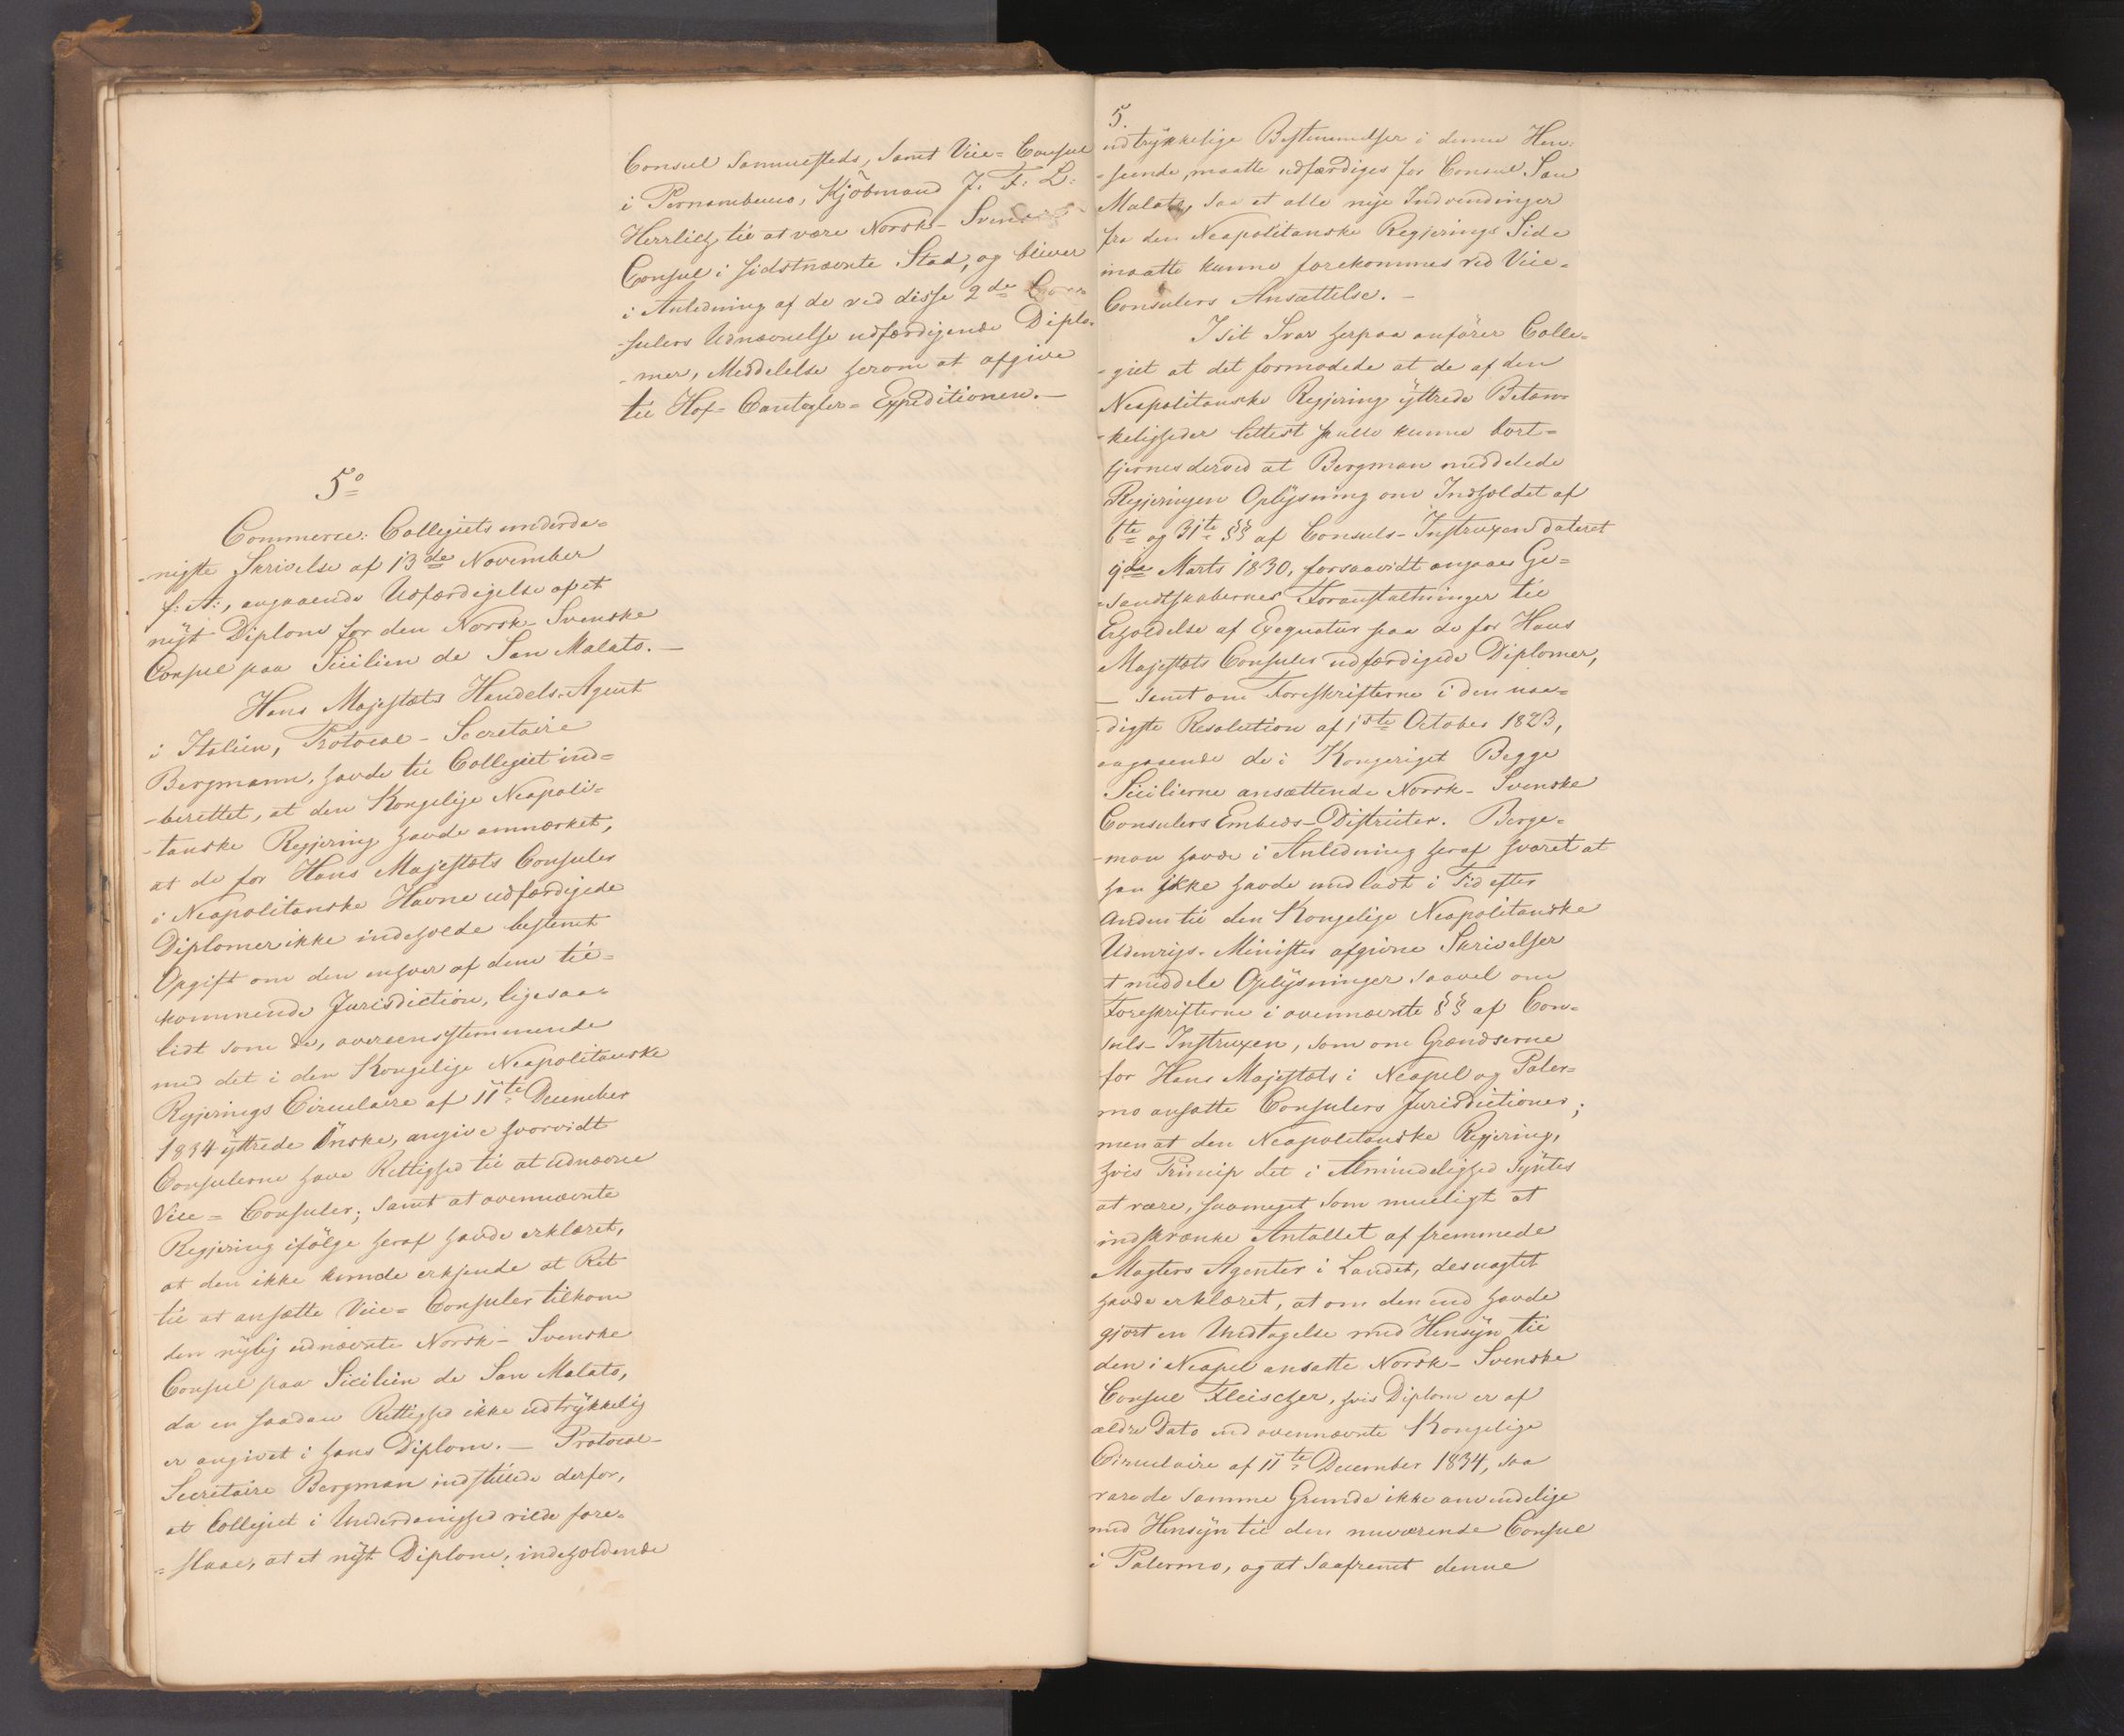 Consul sammesteds, samt Vice=Consul
i Pernambuco, Kjöbmand J. F. L:
til at være Norsk-Svensk
Consul i sidstnævnte Stad, og bliver
i Anledning af de ved disse 2de Con
-sulers Udnævnelse udfærdigende Diplo-
-mer, Meddelelse herom at afgive
til Hof=Cantzler=Expeditionen.—
5º
Commerce: Collegiets underda=
-nigste Skrivelse af 13de November
f: A:, angaaende Udfærdigelse af et
nÿt Diplom for den Norsk-Svenske
Consul paa Sicilien de San Malato.—
Hans Majestæts Handels-Agent
i Italien, Protocol-Secretaire
Bergmann, havde til Collegiet ind=
-berettet, at den Kongelige Neapoli=
-tanske Regjering havde anmærket,
at de for Hans Majestæts Consuler
i Neapolitanske Havne udfærdigede
Diplomer ikke indeholde bestemt
Opgift om den enhver af dem til=
kommende Jurisdiction, ligesaa=
lidt som de, overeensstemmende
med det i den Kongelige Neapolitanske
Regjerings Circulaire af 11te December
1834 ÿttrede Önske, angive hvorvidt
Consulerne have Rettighed til at udnævne
Vice=Consuler; samt at ovennævnte
Regjering ifölge heraf havde erklæret,
at den ikke kunde erkjende at Ret
til at ansætte Vice=Consuler tilkom
den nÿlig udnævnte Norsk-Svenske
Consul paa Sicilien de San Malato,
da en saadan Rettighed ikke udtrÿkkelig
er angivet i hans Diplom.— Protocol-
Secretaire Bergman indstillede derfor,
at Collegiet i Underdanighed vilde fore-
=slaae, at et nÿt Diplom, indeholdende
5.
udtrÿkkelige Bestemmelser i denne Hen-
-seende, maatte udfærdiges for Consul San
Malato, saa at alle nÿe Indvendinger
fra den Neapolitanske Regjerings Side
maatte kunne forekommes ved Vice-
Consulers Ansættelse.—
I sit Svar herpaa anförer Colle-
-giet at det formodede at de af den
Neapolitanske Regjering ÿttrede Betæn-
-keligheder lettest skulle kunne bort=
fjernes derved at Bergman meddelede
Regjeringen Oplÿsning om Indholdet af
6te og 31te §§ af Consuls-Instruxen dateret
9de Marts 1830, forsaavidt angaaer Ge=
=sandtskabernes Foranstaltninger til
Erholdelse af Exequatur paa de for Hans
Majestæts Consuler udfærdigede Diplomer,
— samt om Foreskrifterne i den naa=
-digste Resolution af 1ste October 1823,
angaaende de i Kongeriget Begge
Sicilierne ansættende Norsk-Svenske
Consulers Embeds-Districter. Berg-
-man havde i Anledning heraf svaret at
han ikke havde undladt i Tid efter
anden til den Kongelige Neapolitanske
Udenrigs-Minister afgivne Skrivelser
t meddele Oplÿsninger saavel om
Foreskrifterne i ovennævnte §§ af Con-
suls-Instruxen, som om Grændserne
for Hans Majestæts i Neapel og Paler=
mo ansatte Consulers Jurisdictioner;
men at den Neapolitanske Regjering,
hvis Princip det i Almindelighed sÿntes
at være, saameget som mueligt at
indskrænke Antallet af fremmede
Magters Agenter i Landet, desuagtet
havde erklæret, at om den end havde
gjort en Undtagelse med Hensÿn til
den i Neapel ansatte Norsk-Svenske
Consul Fleischer, hvis Diplom er af
ældre Dato end ovennævnte Kongelige
Circulaire af 11te December 1834, saa
vare de samme Grunde ikke anvendelige
med Hensÿn til den nuværende Consul
i Palermo, og at saafremt denne